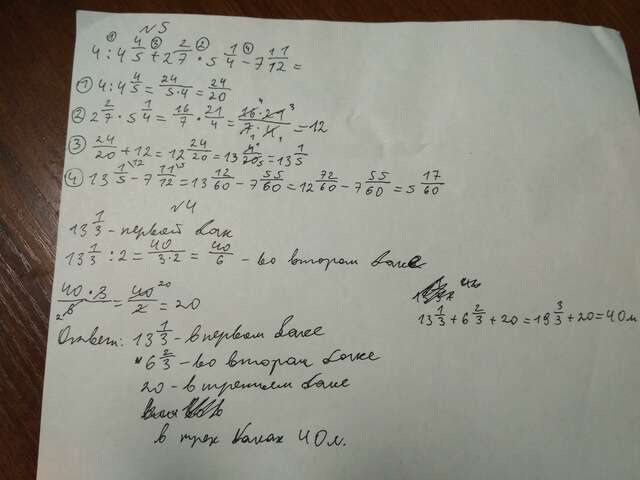 №5
4 : 4 4/5 + 2 2/7 · 5 1/4 - 7 11/12 =
① 4 : 4 4/5 = 24/5·4 = 24/20
② 2 2/7 · 5 1/4 = 16/7 · 21/4 = 16·21/7·4 = 12
③ 24/20 + 12 = 12 24/20 = 13 4/20 = 13 1/5
④ 13 1/5 - 7 11/12 = 13 12/60 - 7 55/60 = 12 72/60 - 7 55/60 = 5 17/60
№4
13 1/3 - первой бак
13 1/3 : 2 = 40/3·2 = 40/6 - во втором баке
40·3/6 = 40/2 = 20
13 1/3 + 6 2/3 + 20 = 19 3/3 + 20 = 40 л
Ответ: 13 1/3 - в первом баке
6 2/3 - во втором бачке
20 - в третьем баке
в трех баках 40 л.